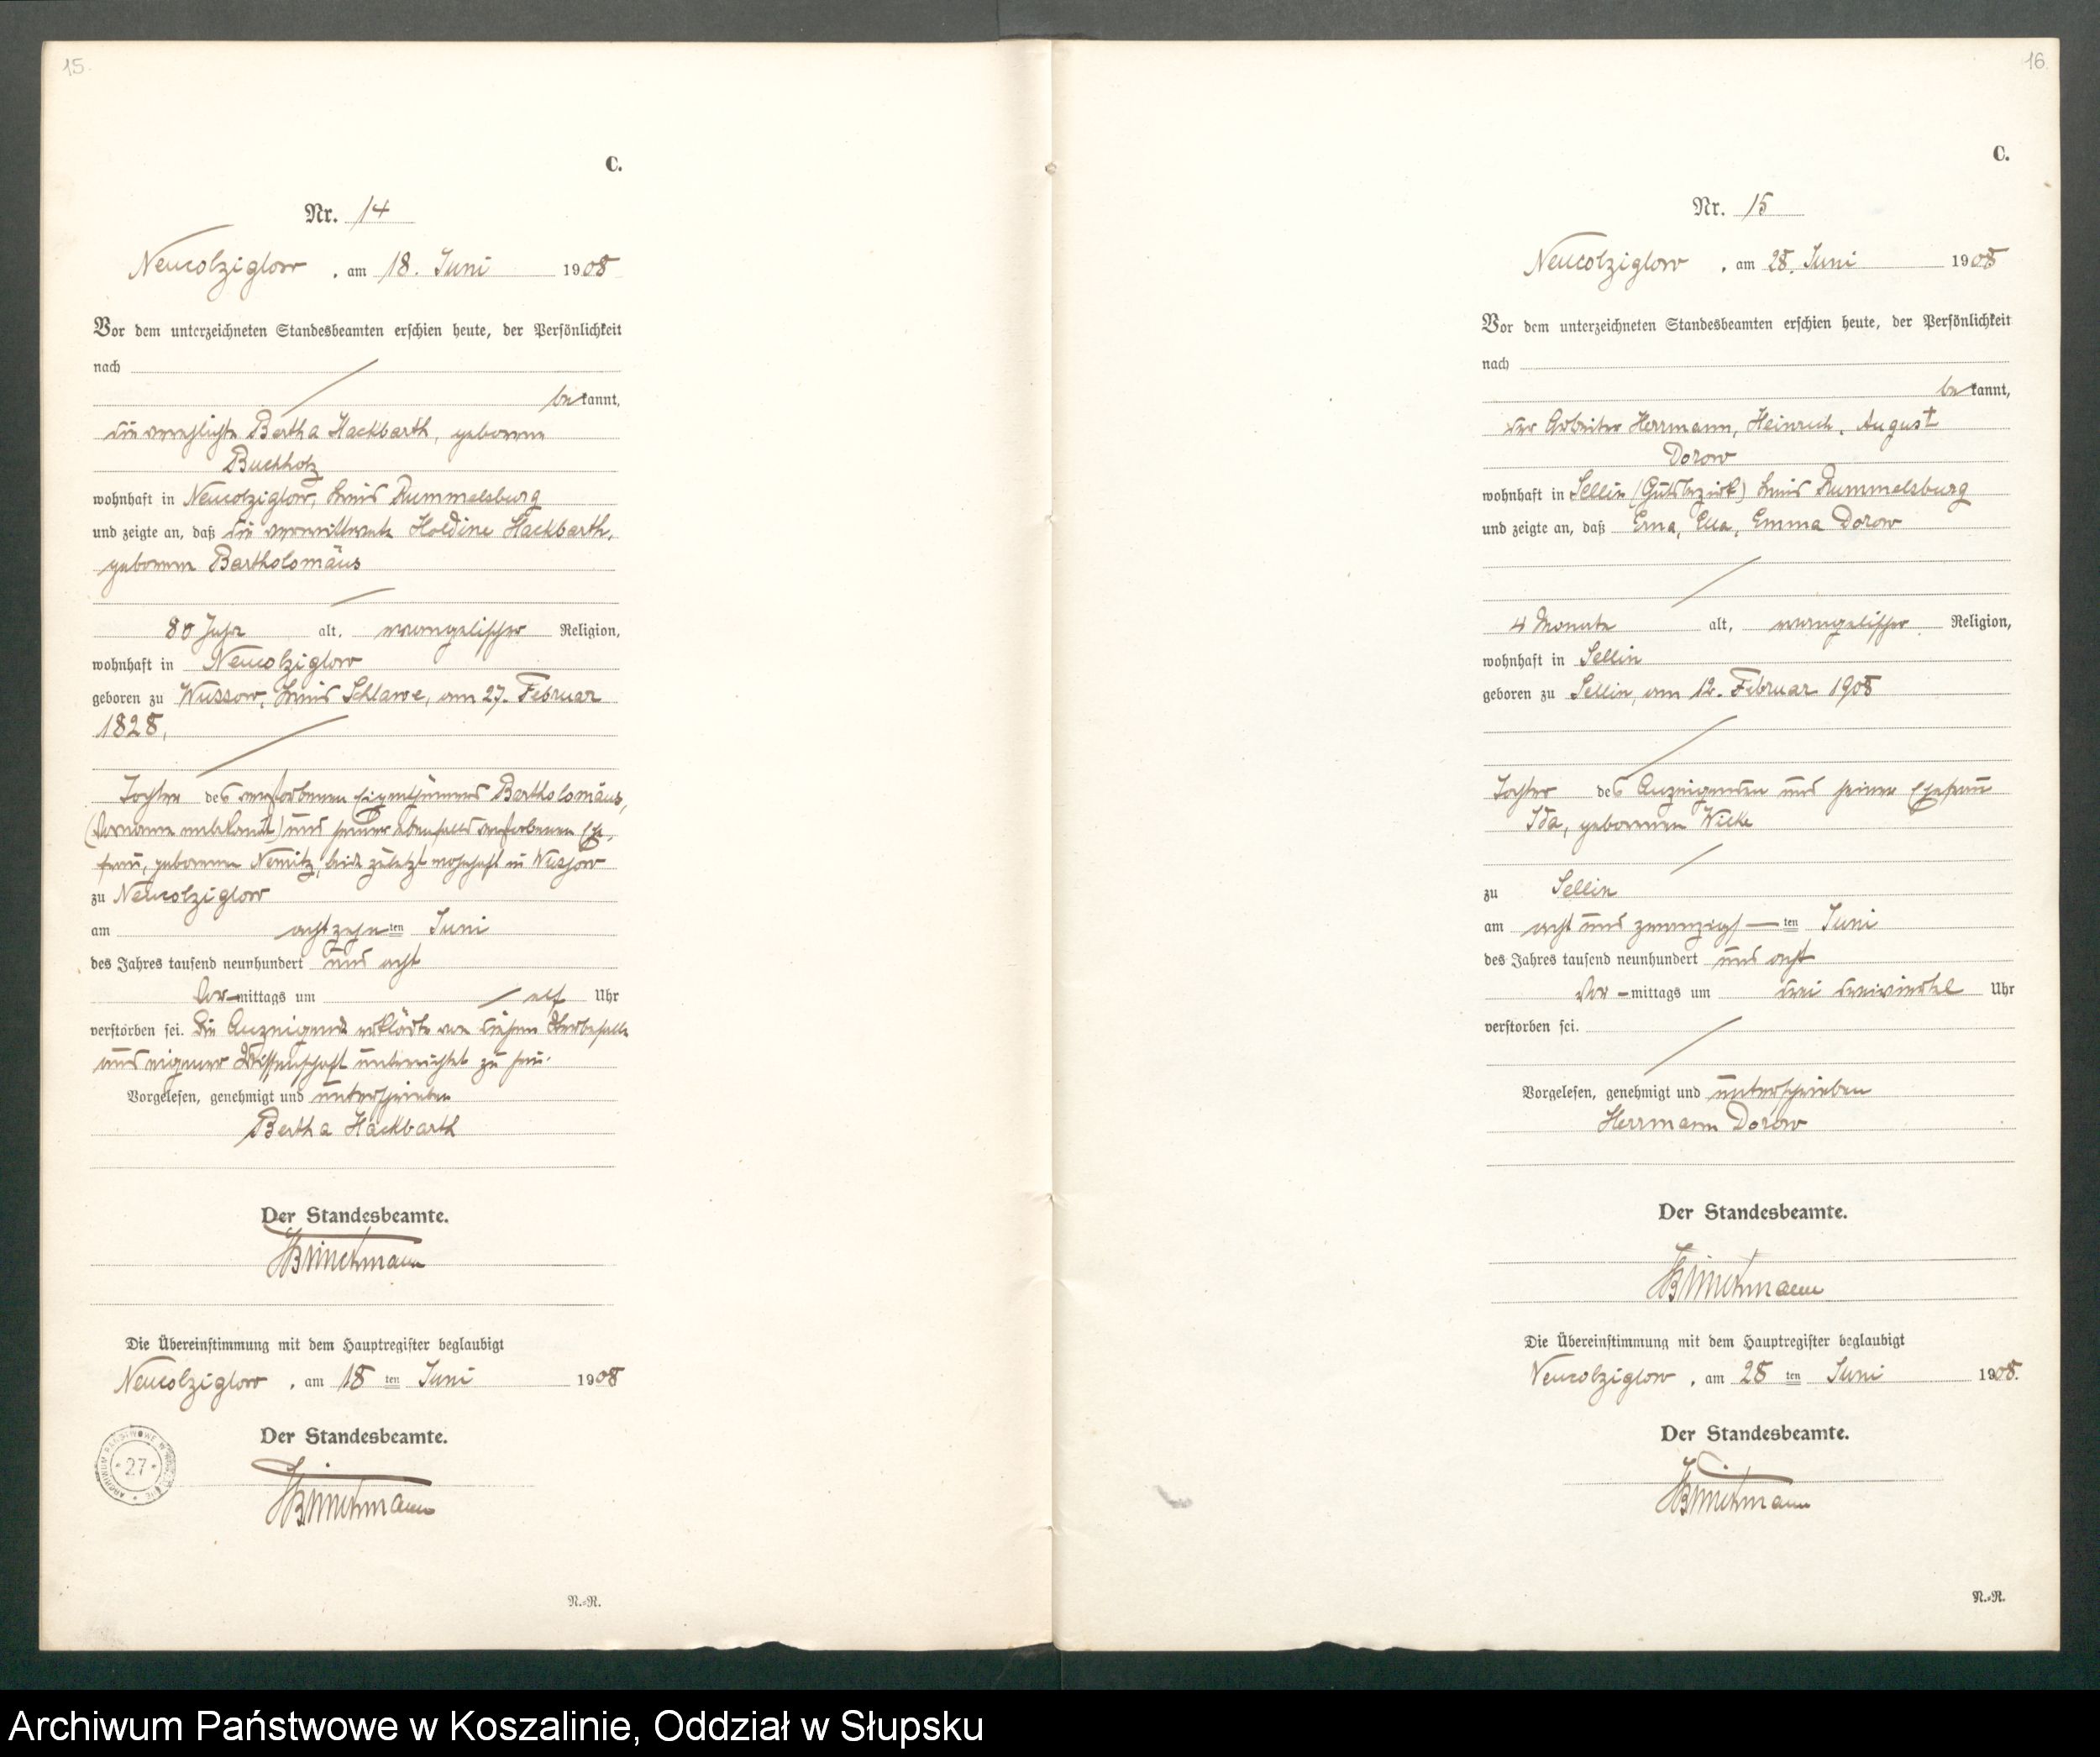 15.
C.
Nr. 14
Neucolziglow, am 18. Juni 1908
Vor dem unterzeichneten Standesbeamten erschien heute, der Persönlichkeit
nach
bekannt,
die verehlichte Bertha Hackbarth, geborene
Buchholz
wohnhaft in Neucolziglow, Kreis Rummelsburg
und zeigte an, daß die verwittwete Holdine Hackbarth,
geborene Bartholomäus
80 Jahr alt, evangelischer Religion,
wohnhaft in Neucolziglow
geboren zu Wussow, Kreis Schlawe, am 27. Februar
1828,
Tochter des verstorbenen Eigenthümers Bartholomäus,
(Vorname unbekannt) und seiner ebenfalls verstorbenen Ehe,
frau, geborene Nemitz, beide zuletzt wohnhaft in Wussow
zu Neucolziglow
am achtzehnten Juni
des Jahres tausend neunhundert und acht
Vor-mittags um elf Uhr
verstorben sei. Die Anzeigende erklärte von diesem Sterbefalle
aus eigener Wissenschaft unterrichtet zu sein.
Vorgelesen, genehmigt und unterschrieben
Bertha Hackbarth
Der Standesbeamte.
Die Übereinstimmung mit dem Hauptregister beglaubigt
Neucolziglow, am 18 ten Juni 1908
Der Standesbeamte.
27
N.=R.
16.
C.
Nr. 15
Neucolziglow, am 28. Juni 1908
Vor dem unterzeichneten Standesbeamten erschien heute, der Persönlichkeit
nach
bekannt,
der Arbeiter Herrmann, Heinrich, August
Dorow
wohnhaft in Sellin (Gutsbezirk) Kreis Rummelsburg
und zeigte an, daß Erna, Ella, Emma Dorow
4 Monate alt, evangelischer Religion,
wohnhaft in Sellin
geboren zu Sellin, am 12. Februar 1908
Tochter des Anzeigenden und seiner Ehefrau
Ida, geborenen Wilke
zu Sellin
am acht und zwanzigsten Juni
des Jahres tausend neunhundert und acht
Vor-mittags um drei dreiviertel Uhr
verstorben sei.
Vorgelesen, genehmigt und unterschrieben
Herrmann Dorow
Der Standesbeamte.
Die Übereinstimmung mit dem Hauptregister beglaubigt
Neucolziglow, am 28 ten Juni 1908.
Der Standesbeamte.
N.=R.
Archiwum Państwowe w Koszalinie, Oddział w Słupsku